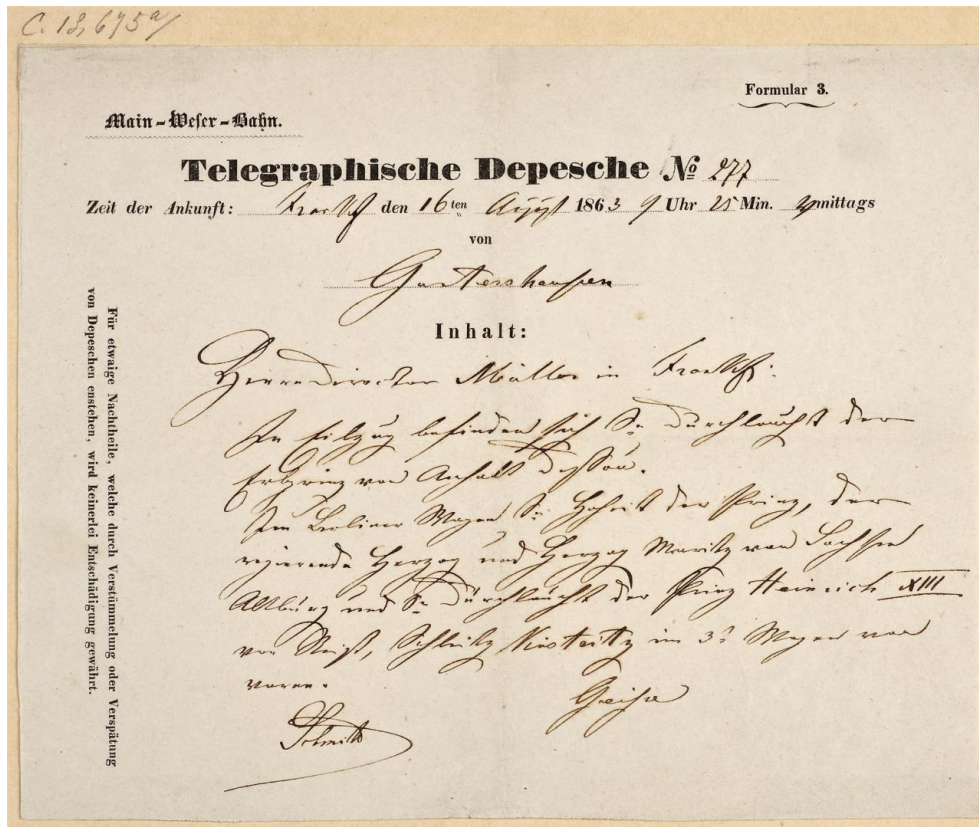 C. 13,675a/
Formular 3.
Main-Weser-Bahn.
Telegraphische Depesche No 277
Zeit der Ankunft: Frankf den 16ten August 1863 9 Uhr 25 Min. Vmittags
von
Guntershausen
Inhalt:
Herrn Director Müller in Frankf.
Im Eilzug befinden sich Sr Durchlaucht der
Erbprinz von Anhalt Dessau.
Im Berliner Wagen Sr Hoheit der Prinz, der
regierende Herzog und Herzog Moritz von Sachsen
Altburg und Sr Durchlaucht der Prinz Heinrich XIII
von Reuß, Schleitz Köstritz im 3r Wagen von
vorn.
Schmitt
Für etwaige Nachtheile, welche durch Verstümmelung oder Verspätung
von Depeschen enstehen, wird keinerlei Entschädigung gewährt.